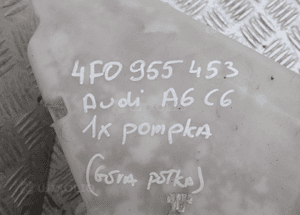 4F0 955 453
Audi A6 C6
1x pompka
(GÓRA PÓŁKA)